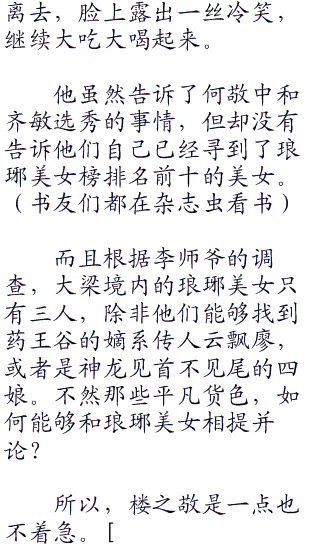 离去，脸上露出一丝冷笑，
继续大吃大喝起来。
他虽然告诉了何敬中和
齐敏选秀的事情，但却没有
告诉他们自己已经寻到了琅
琊美女榜排名前十的美女。
（书友们都在杂志虫看书）
而且根据李师爷的调
查，大梁境内的琅琊美女只
有三人，除非他们能够找到
药王谷的嫡系传人云飘廖，
或者是神龙见首不见尾的四
娘。不然那些平凡货色，如
何能够和琅琊美女相提并
论？
所以，楼之敬是一点也
不着急。[